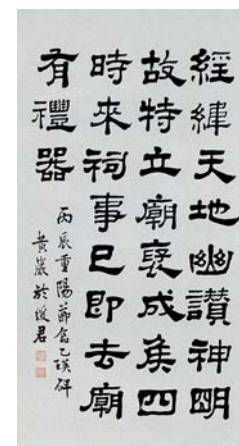 經緯天地幽讃神明
故特立廟襃成侯四
時來祠事已即去廟
有禮器
丙辰重陽節臨乙瑛碑
黃巖於愎君